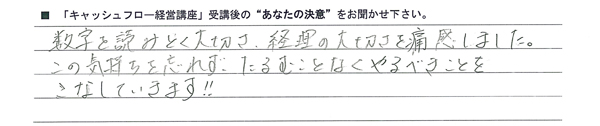 ■ 「キャッシュフロー経営講座」受講後の“あなたの決意”をお聞かせ下さい。
数字を読みとく大切さ、経理の大切さを痛感しました。
この気持ちを忘れず、たるむことなくやるべきことを
こなしていきます!!